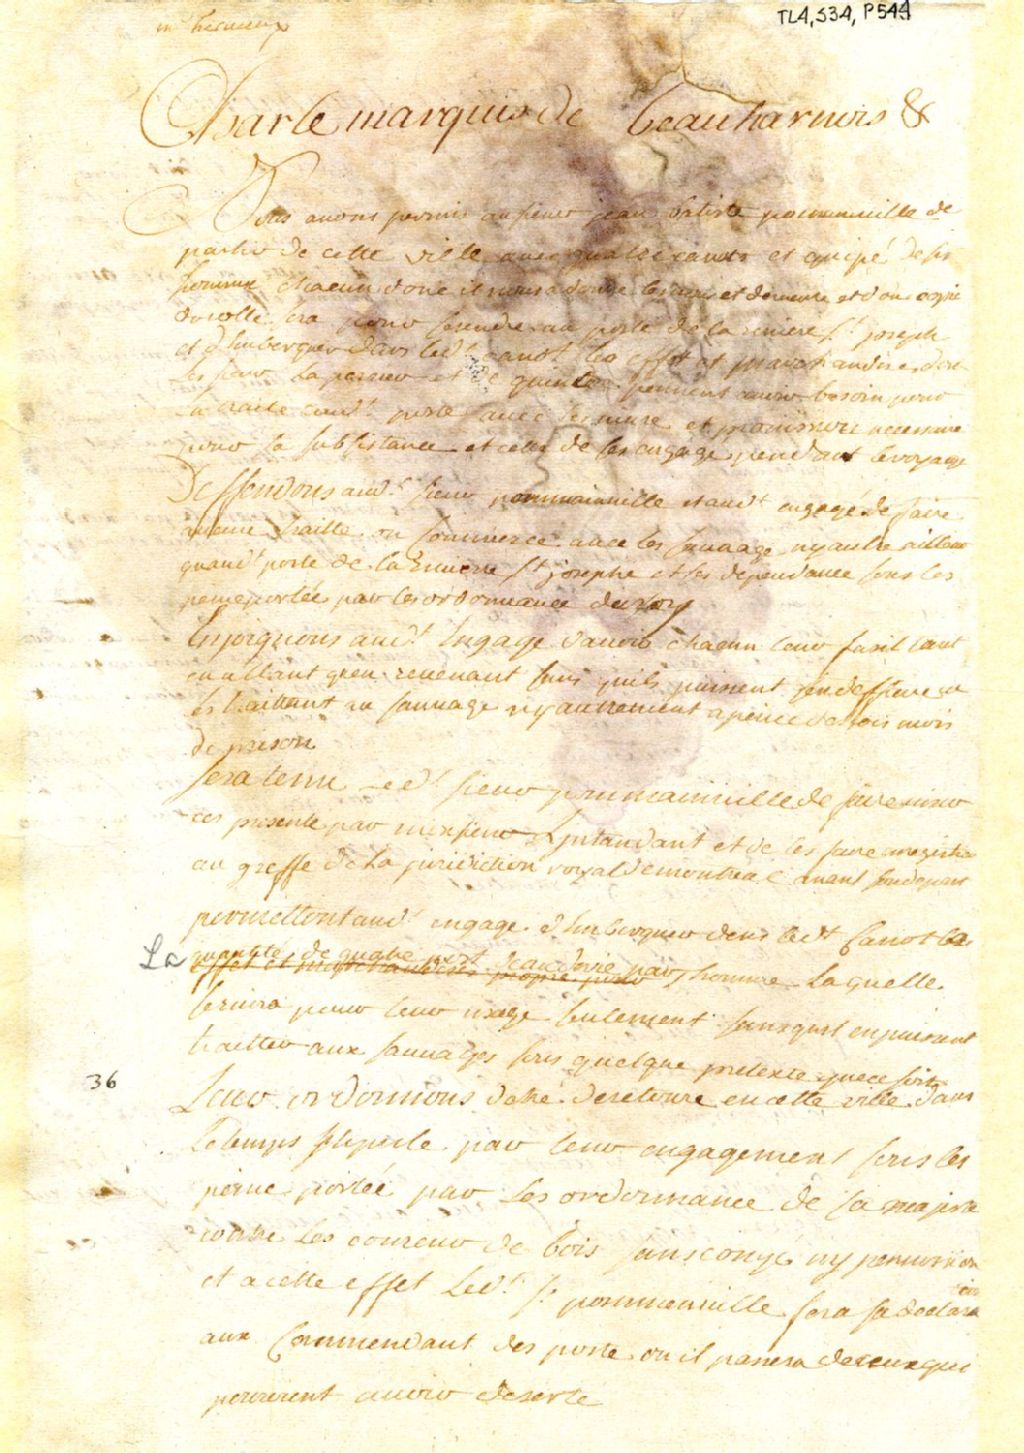 TL4, S34, P544
Charle marquis de beauharnois &
Nous avons permis au sieur jean batiste pommainville de
partir de cette ville avec quattre canots et equipé de six
homme chacun donc il nous a donné les nom et demeure et don copie
du rolle sera pour se rendre au poste de la riviere St joseph
et d'Imberquer dans led. canot les effet et marchandise don
les sieur La perriere et quinde pourront avoir besoin pour
la traite aud. poste avec les vivre et provission necessaire
pour sa subsistance et celle de ses engage pendant le voyage
Deffendons aud. sieur pommainville et aud. engagé de faire
aucune traitte ou Commerce avec les sauvage ny autre ailleur
quaud. poste de la Riviere St josephe et ses dependance sous les
peine portéé par les ordonnance du roy
Enjoignons aud. Engage d'avoir chacun leur fusil tant
en allant qu'en revenant sans quils puissent s'en deffaire en
les traittant au sauvage ny autrement a peine de trois mois
de prison
sera tenu led. sieur pommainville de faire viser
ces presente par monsieur L'intandant et de les faire enregistrer
au greffe de la juridiction royal de montreal avant son depart
permettont aud. engage d'Imberquer dans led. Canot les
La quantité de quatre pot d'eau de vie par homme Laquelle
effet et marchandises propre pour
servira pour leur usage seulement sans quil en puissent
traitter aux sauvages sous quelque pretexte que ce soit
Leur ordonnons d'etre de retoure en cette ville dans
le temps stipulé par leur engagement sous les
peine portéé par les ordonnance de sa majesté
contre les coureur de bois sans congé ny permission
et a cette effet led. Sr. pommainville fera sa declara
tion
aux Commendant des poste ou il passera de ceux qui
pouroient avoir deserté
36